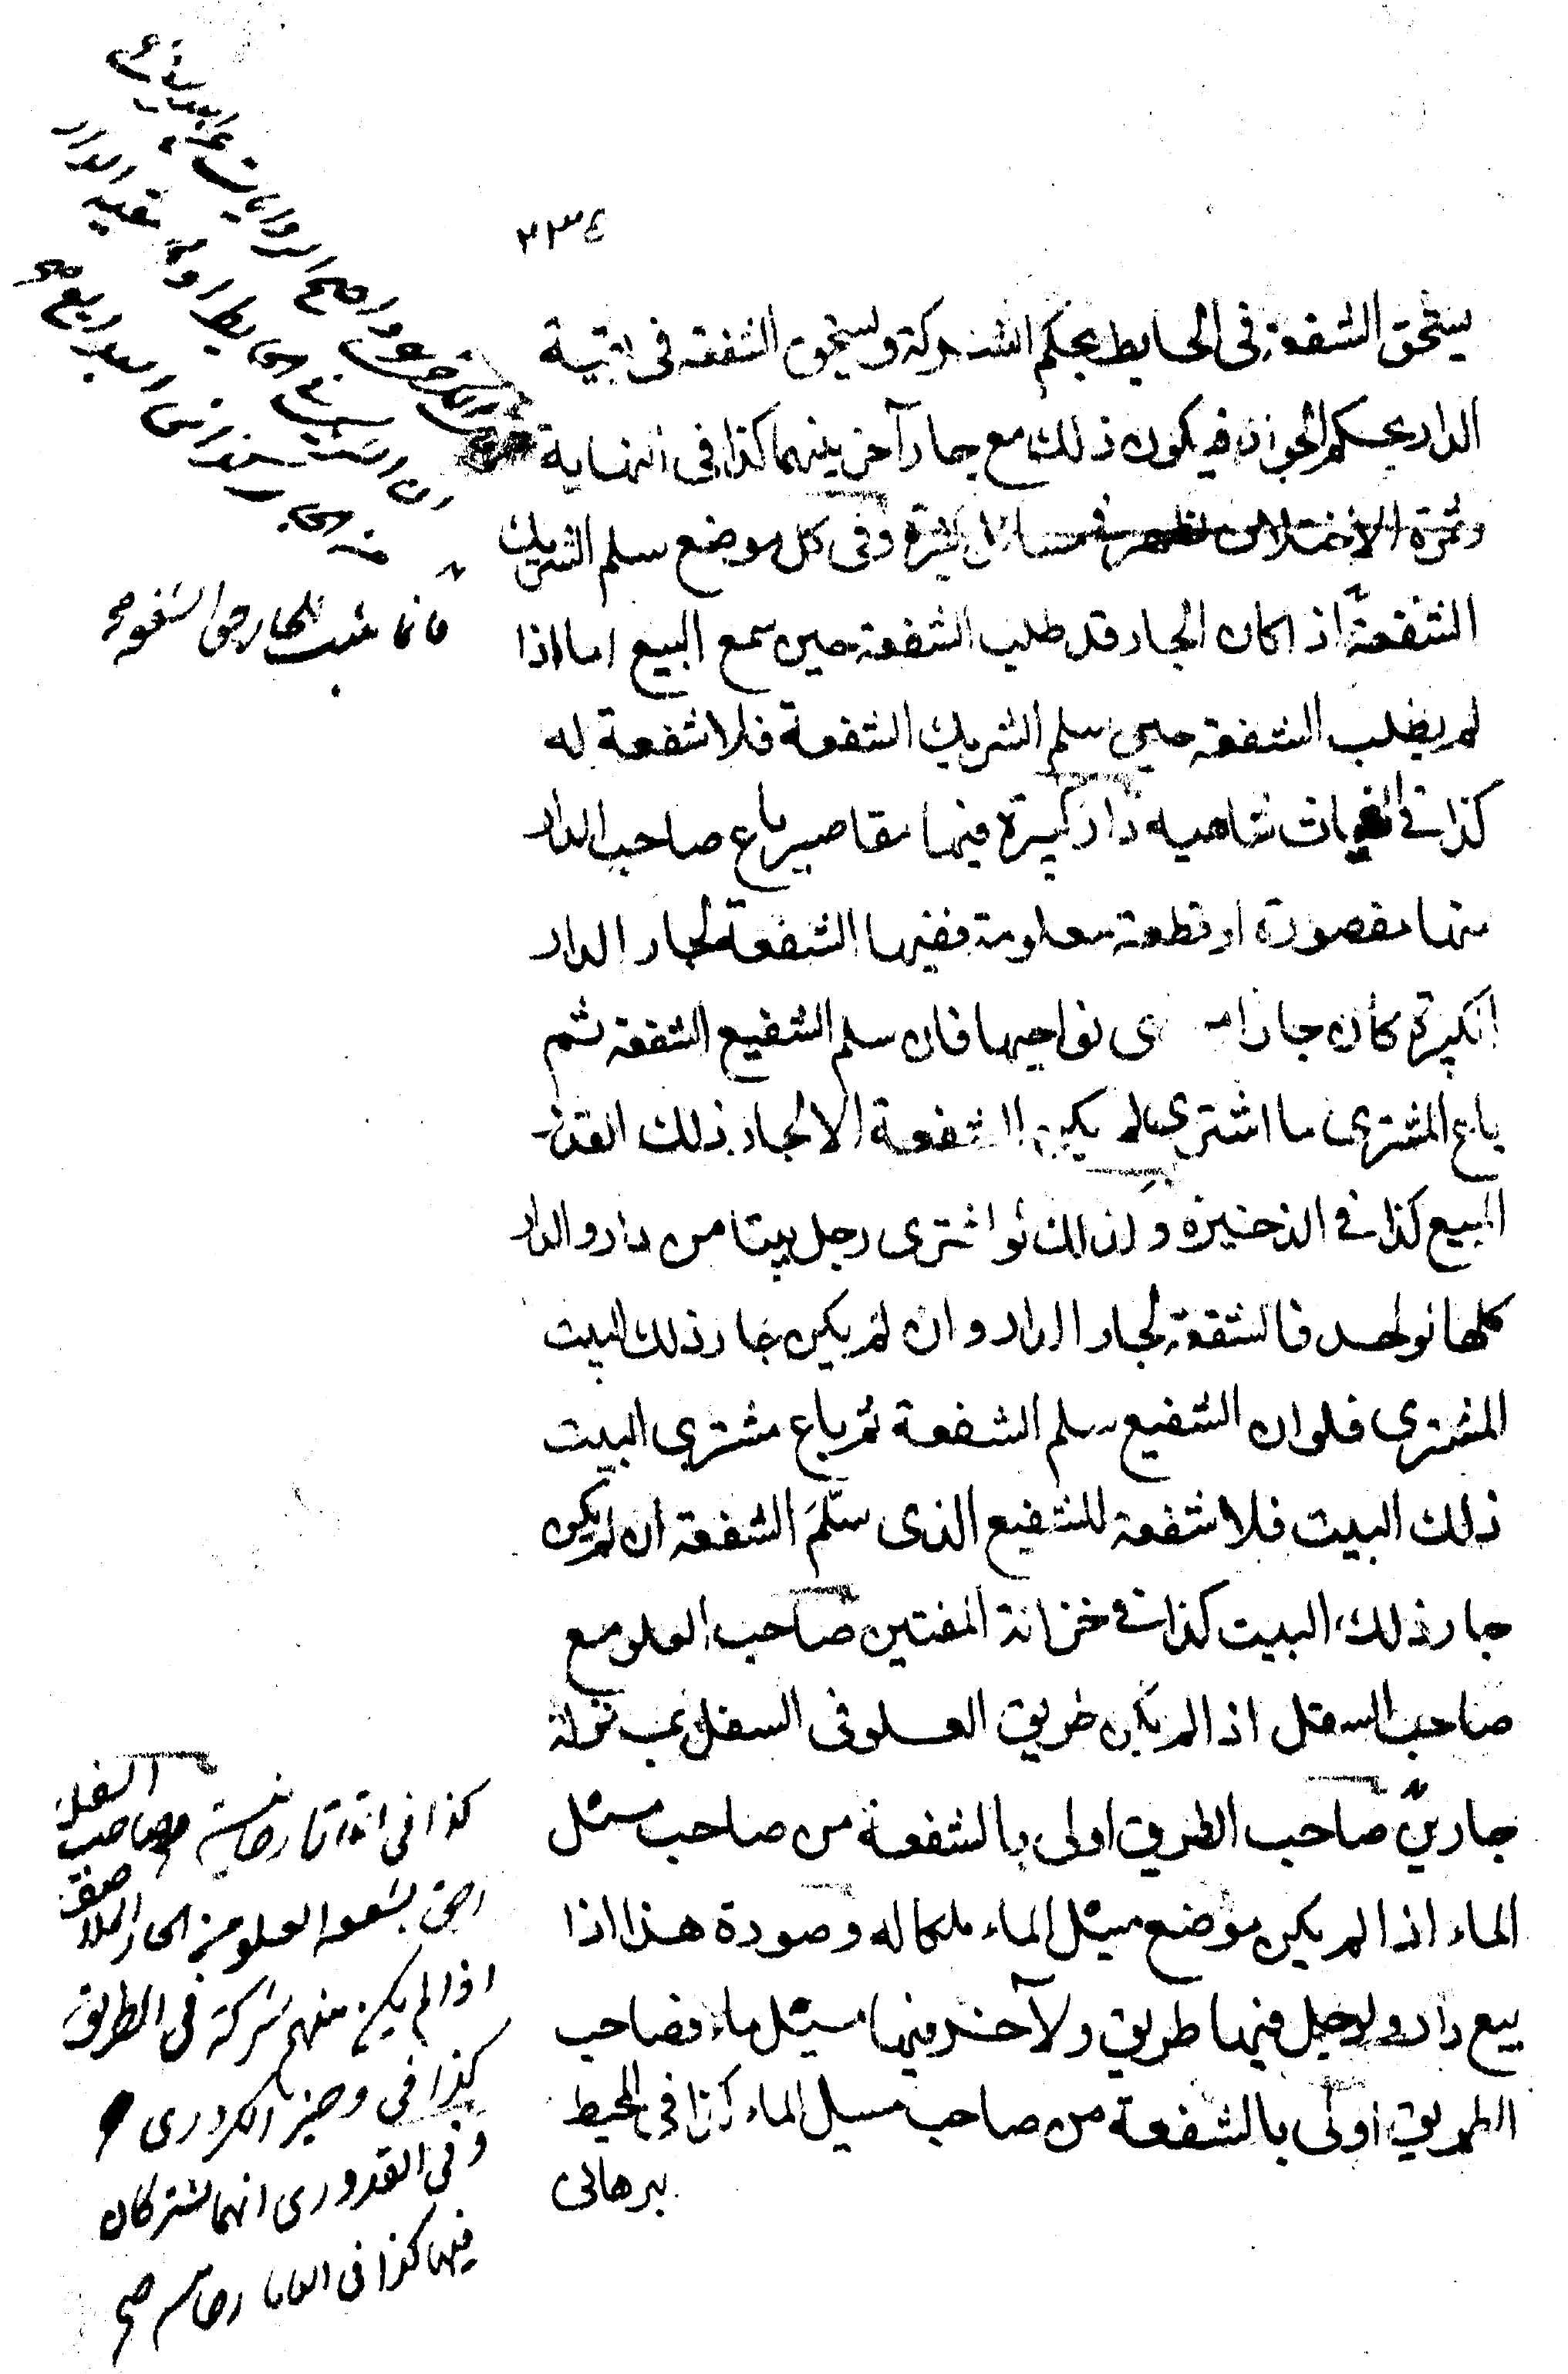 ٢٣٤
يستحق الشفعة فى الحايط بحكم الشركة ويستحق الشفعة فى بقية
الدار بحكم الجوار فيكون ذلك مع جار آخر بينهما كذا فى النهاية
وثمرة الاختلاف تظهر فى مسائل كثيرة وفى كل موضع سلم الشريك
الشفعة اذا كان الجار قد طلب الشفعة حين سمع البيع اما اذا
لم يطلب الشفعة حين سلم الشريك الشفعة فلا شفعة له
كذا فى الغياث شاهيه دار كبيرة فيها مقاصير باع صاحب الدار
منها مقصورة او قطعة معلومة ففيها الشفعة لجار الدار
الكبيرة كان جار نواحيها فان سلم الشفيع الشفعة ثم
باع المشترى ما اشترى لم يكن الشفعة الا لجار ذلك القدر
المبيع كذا فى الذخيرة وكذلك لو اشترى رجل بيتا من دار والدار
كلها لواحد فالشفعة لجار الدار وان لم يكن جار ذلك البيت
المشترى فلو ان الشفيع سلم الشفعة ثم باع مشترى البيت
ذلك البيت فلا شفعة للشفيع الذى سلّم الشفعة ان لم يكن
جار ذلك البيت كذا فى خزانة المفتين صاحب العلو مع
صاحب السفل اذا لم يكن طريق العلو فى السفل بمنزلة
جارين صاحب الطريق اولى بالشفعة من صاحب مسيل
الماء اذا لم يكن موضع مسيل الماء ملكا له وصورة هذا اذا
بيع دار ولرجل فيها طريق ولآخر فيها مسيل ماء فصاحب
الطريق اولى بالشفعة من صاحب مسيل الماء كذا فى المحيط
برهانى
واصح الروايات عن
الحايط او بقية الدار
فانما يثبت للجار حق الشفعة
كذا فى التاتارخانية وصاحب السفل
احق بشفعة العلو من الجار الملاصق
اذا لم يكن منهم شركة فى الطريق
كذا فى وجيز الكردرى
وفى القدورى انهما يشتركان
فيها كذا فى التاتارخانيه صح